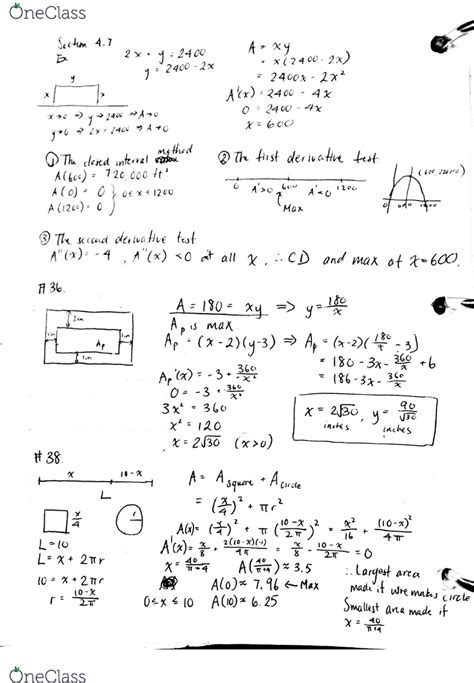 OneClass
Section 4.7
Ex
2x + y = 2400
y = 2400 - 2x
A = xy
= x(2400 - 2x)
= 2400x - 2x²
A'(x) = 2400 - 4x
0 = 2400 - 4x
x = 600
y
x x
x→0 ⇒ y→2400 ⇒ A→0
y→0 ⇒ 2x = 2400 ⇒ A→0
① The closed interval method
A(600) = 720,000 ft²
A(0) = 0
A(1200) = 0
} 0≤x≤1200
② The first derivative test
0 A'>0 600 A'<0 1200
Max
0 600 1200
③ The second derivative test
A"(x) = -4 , A"(x) < 0 at all x, ∴ CD and max at x = 600.
#36.
2in
1in Ap 1in
1in
A = 180 = xy ⇒ y = 180/x
Ap is max
Ap = (x-2)(y-3) ⇒ Ap = (x-2)(180/x - 3)
= 180 - 3x - 360/x + 6
= 186 - 3x - 360/x
Ap'(x) = -3 + 360/x²
0 = -3 + 360/x²
3x² = 360
x² = 120
x = 2√30 (x>0)
x = 2√30 , y = 90/√30
inches inches
#38.
x 10-x
L
x/4
r
L = 10
L = x + 2πr
10 = x + 2πr
r = (10-x)/2π
A = A square + A circle
= (x/4)² + πr²
A(x) = (x/4)² + π((10-x)/2π)² = x²/16 + (10-x)²/4π
A'(x) = x/8 + 2(10-x)(-1)/4π = x/8 - (10-x)/2π = 0
x = 40/(π+4) A(40/(π+4)) ≈ 3.5
A(0) ≈ 7.96 ← Max
0≤x≤10 A(10) ≈ 6.25
∴ Largest area
made if wire makes circle
Smallest area made if
x = 40/(π+4)
OneClass